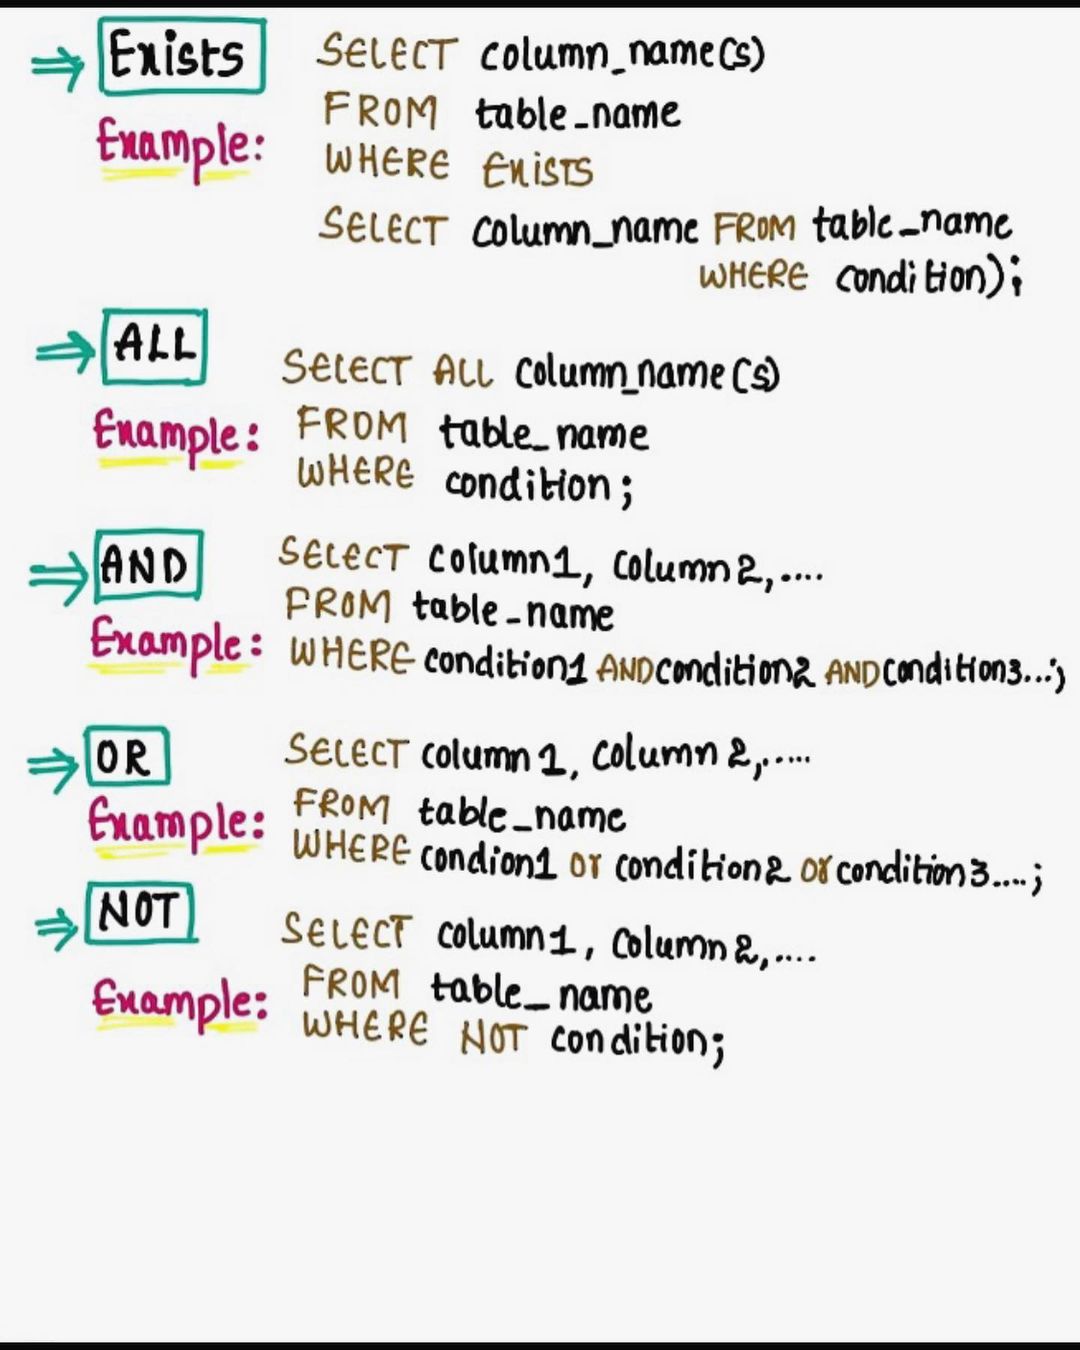 ⇒ Exists
SELECT column_name(s)
Example:
FROM table_name
WHERE EXISTS
SELECT column_name FROM table_name
WHERE condition);
⇒ ALL
SELECT ALL column_name(s)
Example:
FROM table_name
WHERE condition;
⇒ AND
SELECT column1, column2,....
FROM table_name
Example:
WHERE condition1 AND condition2 AND condition3...;
⇒ OR
SELECT column1, column2,....
Example:
FROM table_name
WHERE condion1 or condition2 or condition3....;
⇒ NOT
SELECT column1, column2,....
Example:
FROM table_name
WHERE NOT condition;